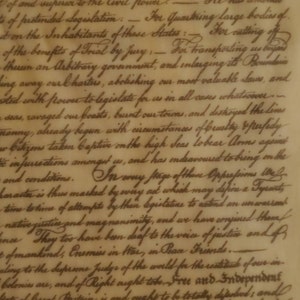 of and superior to the Civil power
of pretended Legislation: — For Quartering large bodies of
on the Inhabitants of these States: — For cutting off
of the benefits of Trial by Jury: — For transporting us beyond
therein an Arbitrary government, and enlarging its Boundaries
our most valuable Laws, and
with power to legislate for us in all cases whatsoever
seas, ravaged our Coasts, burnt our towns, and destroyed the lives
already begun with circumstances of Cruelty & perfidy
Citizens taken Captive on the high Seas to bear Arms against
insurrections amongst us, and has endeavoured to bring on the
and conditions. In every stage of these Oppressions We
character is thus marked by every act which may define a Tyrant
time to time of attempts by their legislature to extend an unwarrantable
and magnanimity, and we have conjured them
They too have been deaf to the voice of justice and of
of mankind, Enemies in War, in Peace Friends. —
to the Supreme Judge of the world for the rectitude of our in
Colonies are, and of Right ought to be Free and Independent
is and ought to be totally dissolved; and